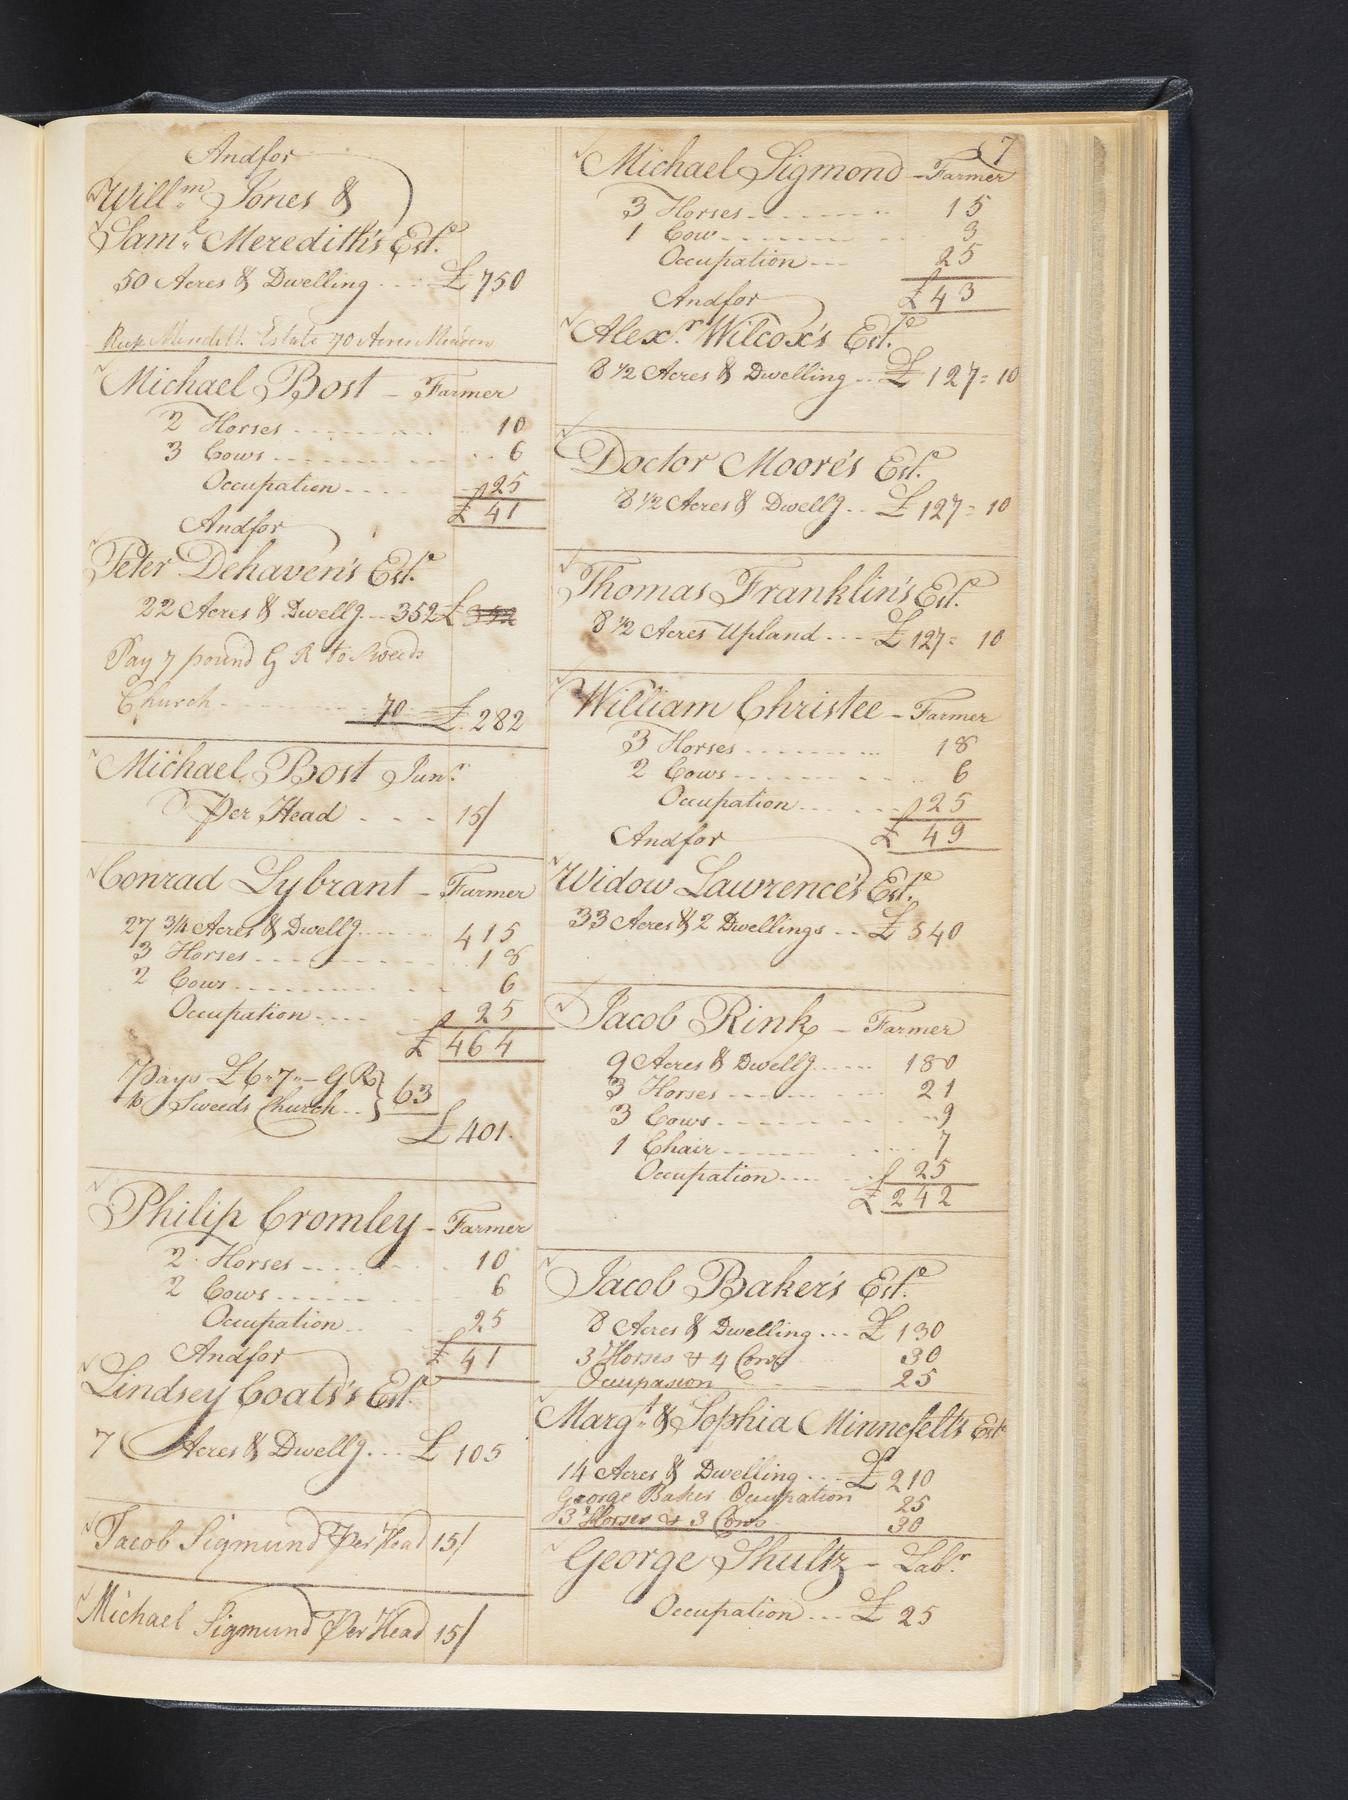 Andfor
Will.m Jones &
Sam.l Meredith's Est.e
50 Acres & Dwelling £750
Estate 70 Acres
Michael Bost - Farmer
2 Horses 10
3 Cows 6
Occupation 25
£ 41
Andfor
Peter Dehaven's Est.e
22 Acres & Dwellg 352 £ 352
Pay 7 pound G R to Sweeds
Church 70 £ 282
Michael Bost Jun.r
Per Head 15/
Conrad Lybrant - Farmer
27 3/4 Acres & Dwellg 415
3 Horses 18
2 Cows 6
Occupation 25
£ 464
Pays £6"7"- G R
to Sweeds Church 63
£ 401.
Philip Cromley - Farmer
2 Horses 10
2 Cows 6
Occupation 25
£ 41
Andfor
Lindsey Coats's Est.e
7 Acres & Dwellg £ 105
Jacob Sigmund Per Head 15/
Michael Sigmund Per Head 15/
7
Michael Sigmond - Farmer
3 Horses 15
1 Cow 3
Occupation 25
£ 43
Andfor
Alex.r Wilcox's Est.e
8 1/2 Acres & Dwelling £ 127=10
Doctor Moore's Est.e
8 1/2 Acres & Dwellg £ 127=10
Thomas Franklin's Est.e
8 1/2 Acres Upland £ 127=10
William Christee - Farmer
3 Horses 18
2 Cows 6
Occupation 25
£ 49
Andfor
Widow Lawrence's Est.e
33 Acres & 2 Dwellings £ 540
Jacob Rink - Farmer
9 Acres & Dwellg 180
3 Horses 21
3 Cows 9
1 Chair 7
Occupation 25
£ 242
Jacob Baker's Est.e
8 Acres & Dwelling £ 130
3 Horses & 4 Cows 30
Occupasion 25
Marg.t & Sophia Minnefelt's Est.e
14 Acres & Dwelling £ 210
George Baker Occupation 25
3 Horses & 3 Cows 30
George Shultz - Lab.r
Occupation £ 25